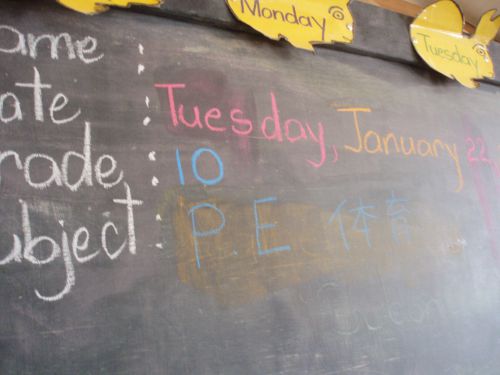 Monday
Tuesday
ame :
ate : Tuesday, January 22
rade : 10
ubject : P.E 体育